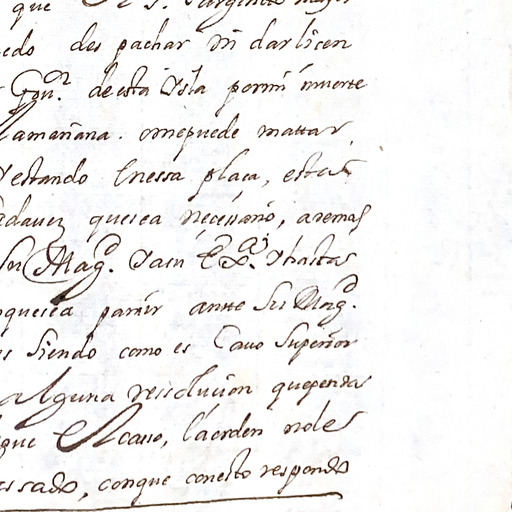 que El S. Sargento mayor
edo des pachar ni dar licen
Gouᵒʳ. de esta Ysla por mi muerte
la mañana. o me puede mattar
Y estando En essa plaça, esta
cada uez que sea necessario, a remas
su Magᵈ. Y a su Exᵃ. Y hastas
que sea parair antte Su Magᵈ.
siendo como es Cauo Superior
alguna ressolucion que penda
que El Cauo, la orden no le
ssado, con que con esto respondo